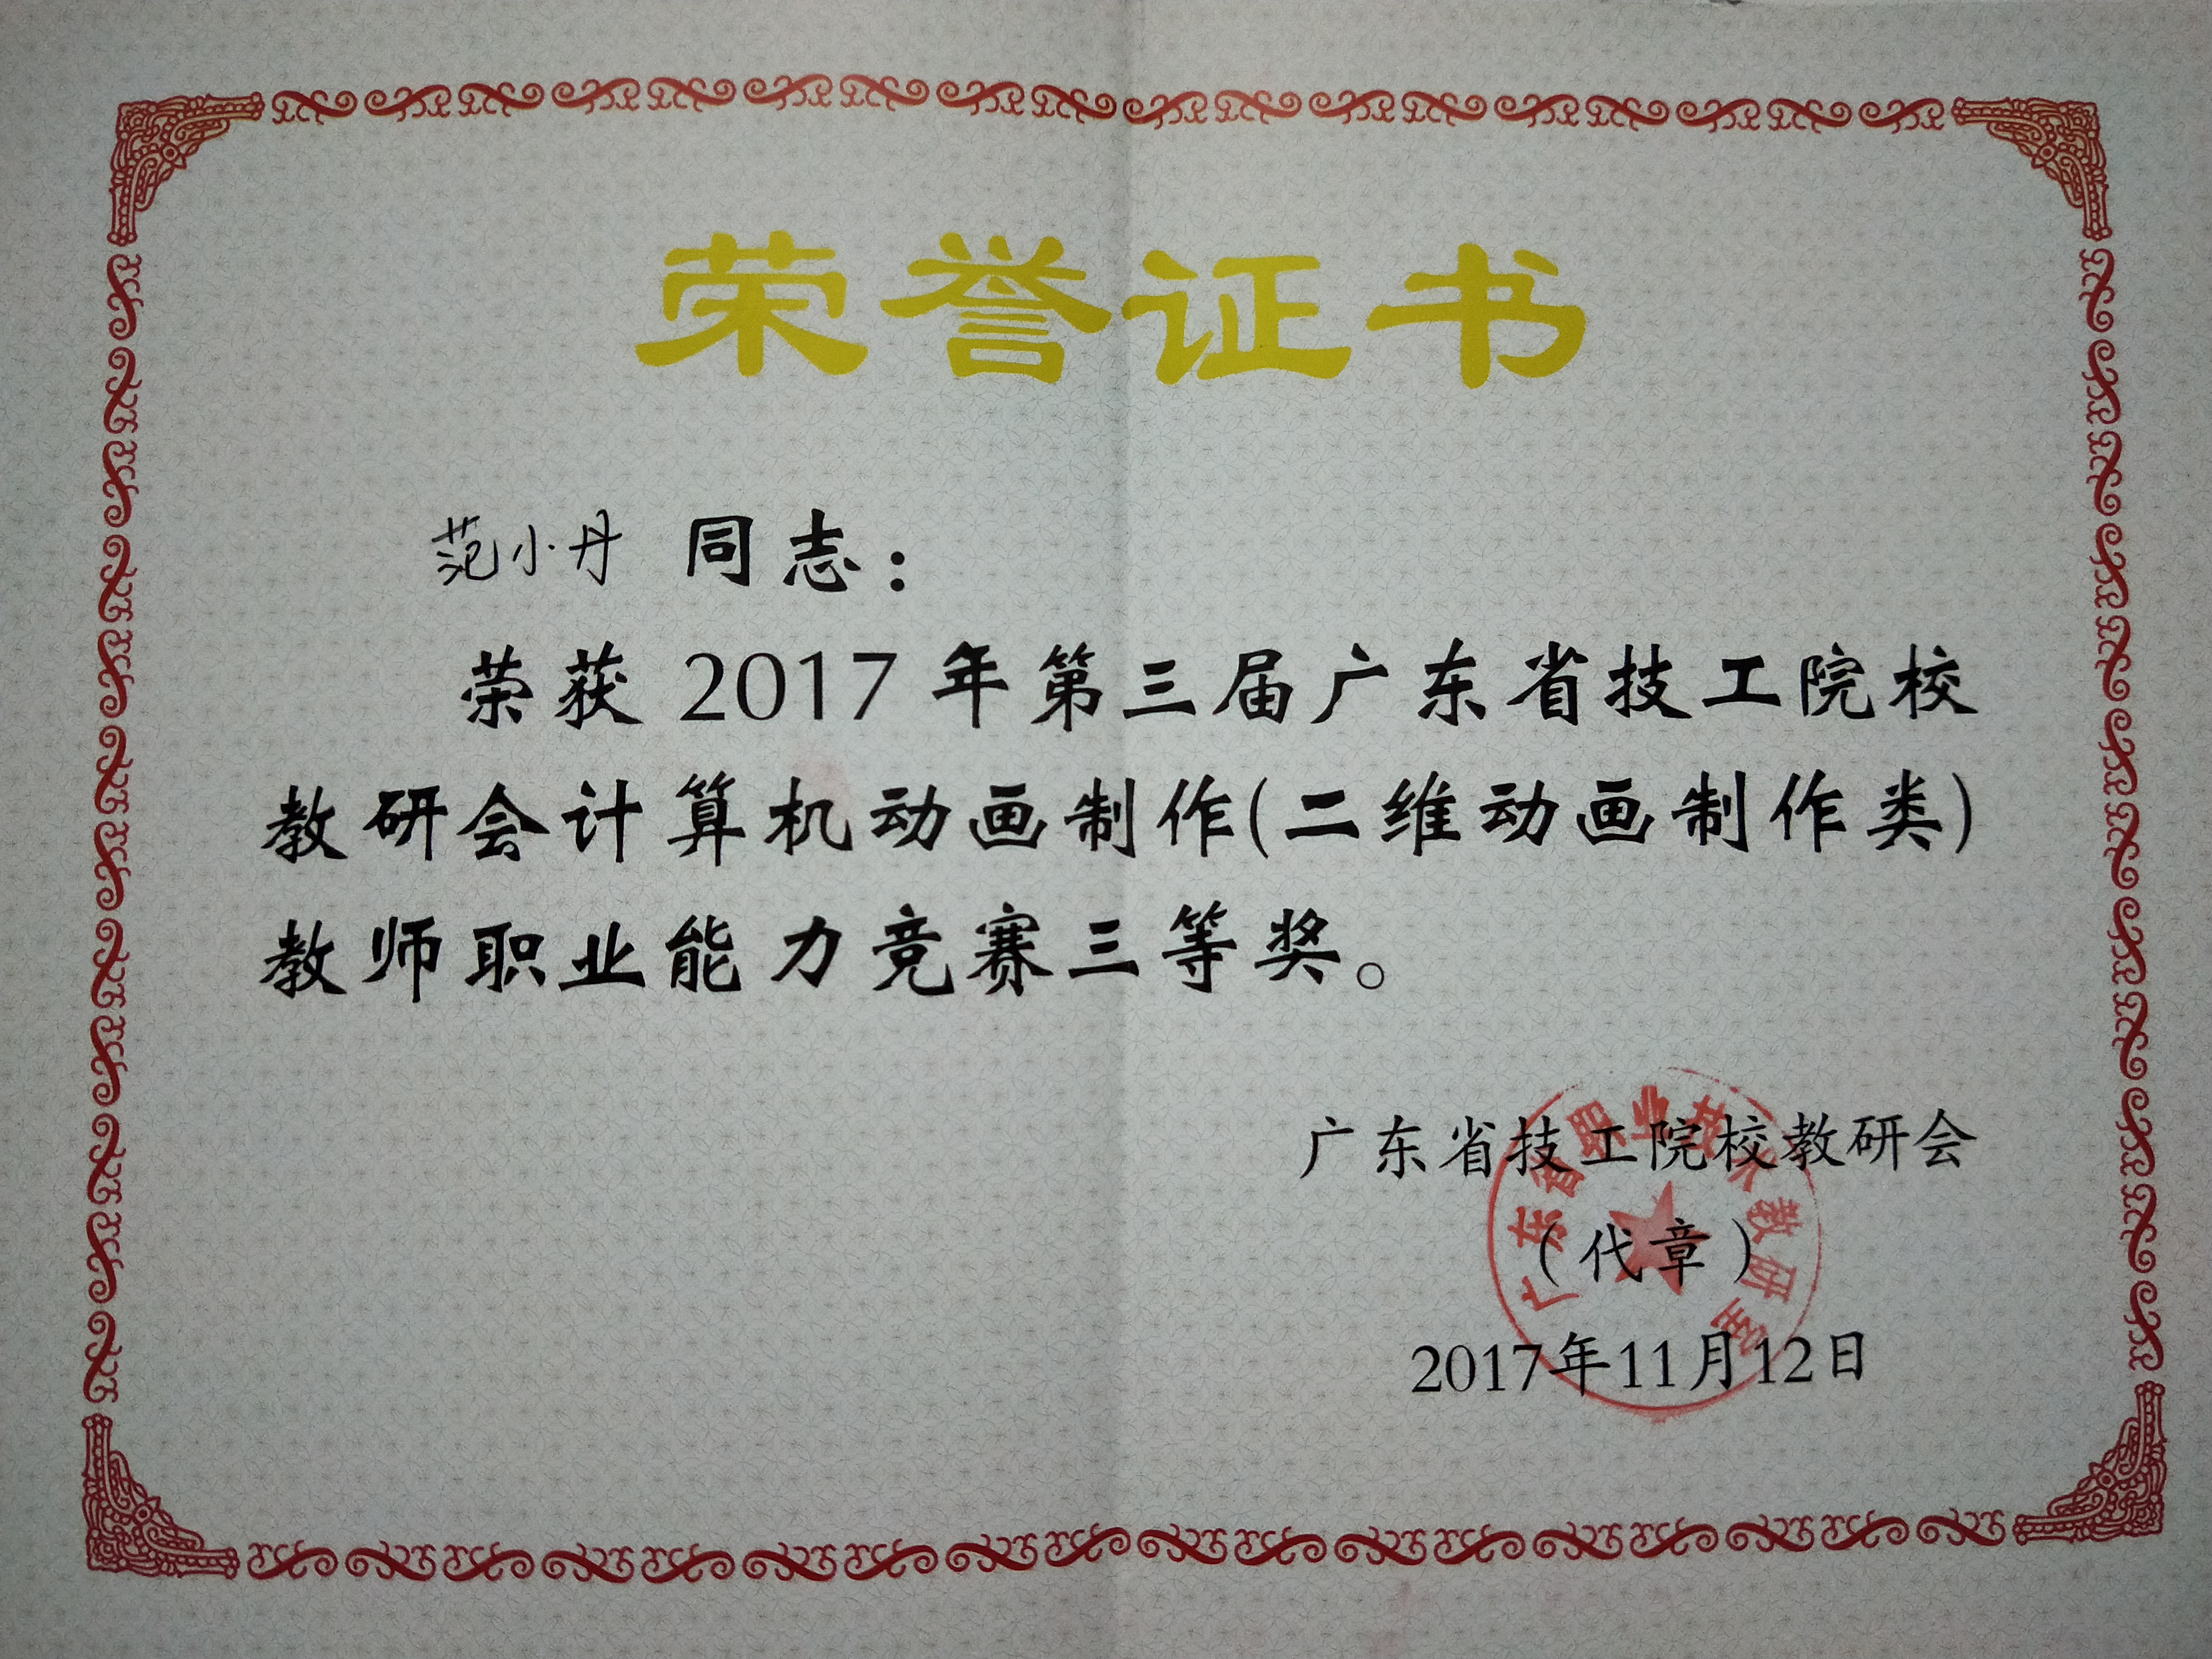 荣誉证书
范小丹 同志：
荣获 2017 年第三届广东省技工院校
教研会计算机动画制作(二维动画制作类)
教师职业能力竞赛三等奖。
广东省技工院校教研会
（代章）
2017年11月12日
广东省职业技术教研室